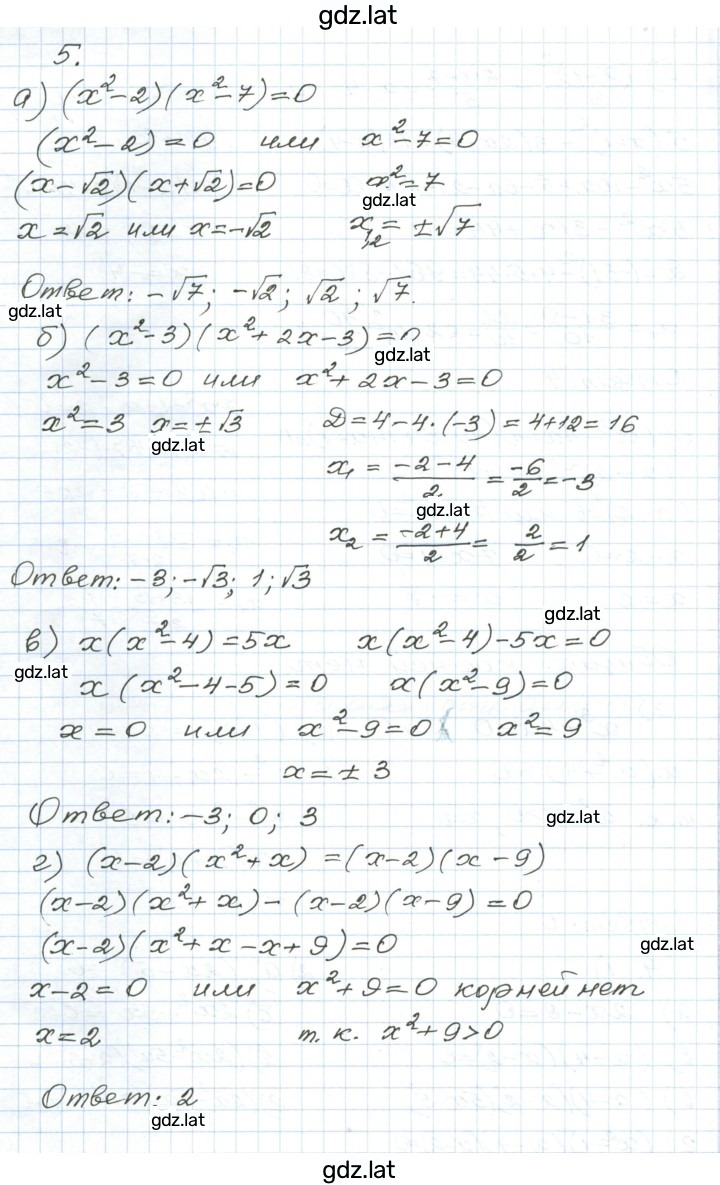 gdz.lat
5.
а) (x²-2)(x²-7)=0
(x²-2)=0 или x²-7=0
(x-√2)(x+√2)=0 x²=7
gdz.lat
x=√2 или x=-√2 x₁,₂=±√7
Ответ: -√7; -√2; √2; √7.
gdz.lat
б) (x²-3)(x²+2x-3)=0
gdz.lat
x²-3=0 или x²+2x-3=0
x²=3 x=±√3 D=4-4·(-3)=4+12=16
gdz.lat
x₁ = (-2-4)/2 = -6/2 = -3
gdz.lat
x₂ = (-2+4)/2 = 2/2 = 1
Ответ: -3; -√3; 1; √3
gdz.lat
в) x(x²-4)=5x x(x²-4)-5x=0
gdz.lat
x(x²-4-5)=0 x(x²-9)=0
x=0 или x²-9=0 x²=9
x=±3
Ответ: -3; 0; 3
gdz.lat
г) (x-2)(x²+x)=(x-2)(x-9)
(x-2)(x²+x)-(x-2)(x-9)=0
(x-2)(x²+x-x+9)=0
gdz.lat
x-2=0 или x²+9=0 корней нет
x=2 т.к. x²+9>0
Ответ: 2
gdz.lat
gdz.lat